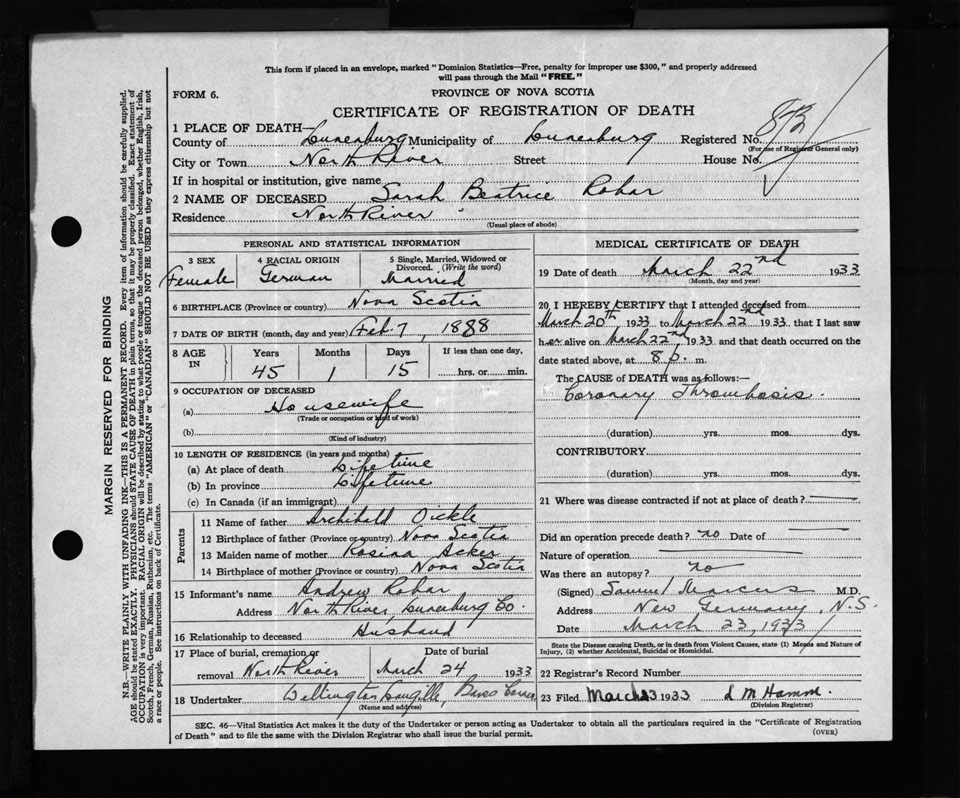 This form if placed in an envelope, marked "Dominion Statistics—Free, penalty for improper use $300," and properly addressed
will pass through the Mail "FREE."
FORM 6.
PROVINCE OF NOVA SCOTIA
CERTIFICATE OF REGISTRATION OF DEATH
1 PLACE OF DEATH—
County of Lunenburg Municipality of Lunenburg Registered No.
(For use of Registrar General only)
City or Town North River Street House No.
If in hospital or institution, give name
2 NAME OF DECEASED Sarah Beatrice Rohar
Residence North River
(Usual place of abode)
PERSONAL AND STATISTICAL INFORMATION
3 SEX 4 RACIAL ORIGIN 5 Single, Married, Widowed or
Divorced. (Write the word)
Female German Married
6 BIRTHPLACE (Province or country) Nova Scotia
7 DATE OF BIRTH (month, day and year) Feb 7, 1888
8 AGE IN Years Months Days If less than one day,
45 1 15 hrs. or min.
9 OCCUPATION OF DECEASED
(a) Housewife
(Trade or occupation or kind of work)
(b)
(Kind of industry)
10 LENGTH OF RESIDENCE (in years and months)
(a) At place of death Lifetime
(b) In province Lifetime
(c) In Canada (if an immigrant)
Parents
11 Name of father Archibald Oickle
12 Birthplace of father (Province or country) Nova Scotia
13 Maiden name of mother Rosina Acker
14 Birthplace of mother (Province or country) Nova Scotia
15 Informant's name Andrew Rohar
Address North River, Lunenburg Co.
16 Relationship to deceased Husband
17 Place of burial, cremation or Date of burial
removal North River March 24 1933
18 Undertaker
(Name and address)
MEDICAL CERTIFICATE OF DEATH
19 Date of death March 22nd 1933
(Month, day and year)
20 I HEREBY CERTIFY that I attended deceased from
March 20th, 1933 to March 22nd 1933 that I last saw
her alive on March 22nd 1933 and that death occurred on the
date stated above, at 8 p. m.
The CAUSE OF DEATH was as follows:—
Coronary Thrombosis.
(duration) yrs. mos. dys.
CONTRIBUTORY
(duration) yrs. mos. dys.
21 Where was disease contracted if not at place of death?
Did an operation precede death? no Date of
Nature of operation
Was there an autopsy? no
(Signed) Samuel Marcus M.D.
Address New Germany, N.S.
Date March 23, 1933
State the Disease causing Death, or in death from Violent Causes, state (1) Means and Nature of
Injury, (2) whether Accidental, Suicidal or Homicidal.
22 Registrar's Record Number
23 Filed March 23 1933 L M Hamm.
(Division Registrar)
SEC. 46—Vital Statistics Act makes it the duty of the Undertaker or person acting as Undertaker to obtain all the particulars required in the "Certificate of Registration
of Death" and to file the same with the Division Registrar who shall issue the burial permit.
(OVER)
MARGIN RESERVED FOR BINDING
N.B.—WRITE PLAINLY WITH UNFADING INK—THIS IS A PERMANENT RECORD. Every item of information should be carefully supplied.
AGE should be stated EXACTLY. PHYSICIANS should STATE CAUSE OF DEATH in plain terms, so that it may be properly classified. Exact statement of
OCCUPATION is very important. RACIAL ORIGIN will be described by stating to what people or tongue the deceased person belonged, whether English, Irish,
Scotch, French, German, Russian, Ruthenian, etc. The terms "AMERICAN" or "CANADIAN" SHOULD NOT BE USED as they express citizenship but not
a race or people. See instructions on back of Certificate.